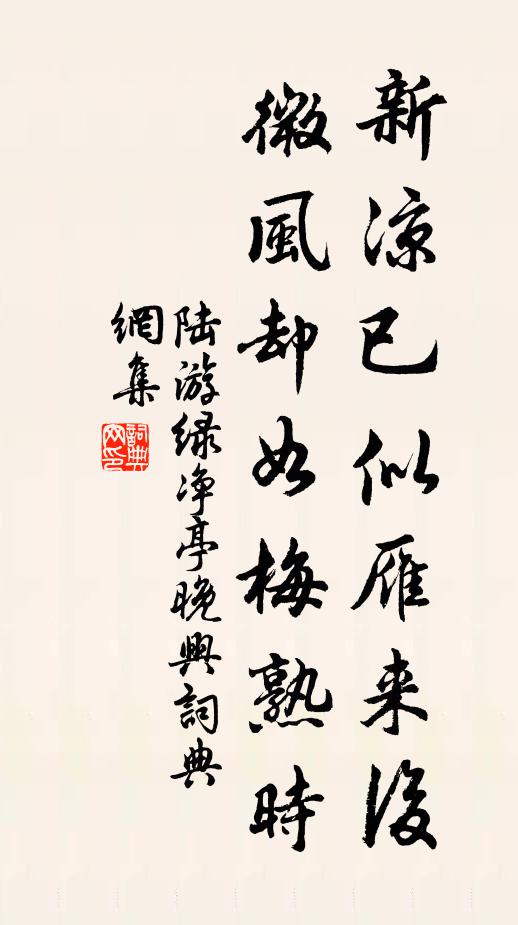 新凉已似雁来後
微風却如梅熟時
陆游绿净亭晚興詞典
網集
詞典
网印